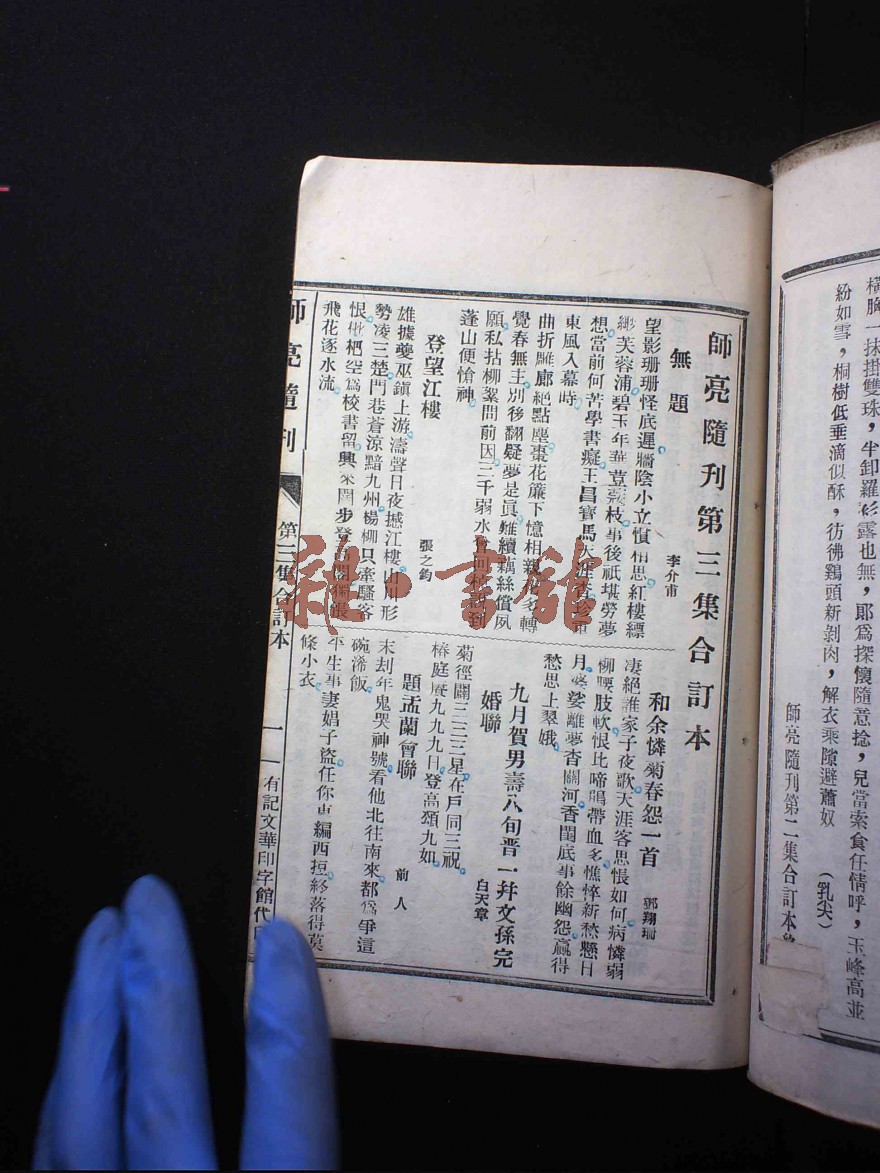 橫胸一抹掛雙珠，半卸羅衫露也無，郞爲探懷隨意捻，兒當索食任情呼，玉峰高並
紛如雪，桐樹低垂滴似酥，彷彿鷄頭新剝肉，解衣乘隙避蕭奴
（乳尖）
師亮隨刊第二集合訂本
師亮隨刊第三集合訂本
無題
李介甫
望影珊珊怪底遲。牆陰小立慣相思。紅樓縹
緲芙蓉浦。碧玉年華荳蔻枝。事後祇堪勞夢
想。當前何苦學書癡。王昌寶馬天涯杳。珍重
東風入暮時。
曲折雕廊絕點塵。棗花簾下憶相親。多轉
覺春無主。別後翻疑夢是眞。難續藕絲償夙
願。私拈柳絮問前因。三千弱水會回到
蓬山便愴神。
登望江樓
張之鈞
雄據夔巫鎭上游。濤聲日夜撼江樓。山川形
勢凌三楚。門巷蒼涼黯九州。楊柳只牽騷客
恨。枇杷空爲校書留。興來閒步登高閣。獨悵
飛花逐水流。
和余憐菊春怨一首
郭翔珊
凄絕誰家子夜歌。天涯客思悵如何。病憐弱
柳腰肢軟。恨比啼鵑帶血多。憔悴新愁懸日
月。婆娑離夢杳關河。香閨底事餘幽怨。贏得
愁思上翠娥。
九月賀男壽八旬晋一并文孫完
婚聯
白天章
菊徑闢三三三星在戶同三祝。
椿庭慶九九九日登高頌九如。
題盂蘭會聯
前人
末刦年鬼哭神號。看他北往南來。都爲爭這
碗浠飯。
平生事妻娼子盜。任你東編西挜。終落得莫
條小衣。
師亮隨刊
第三集合訂本
一
有記文華印字館代
雜·書館